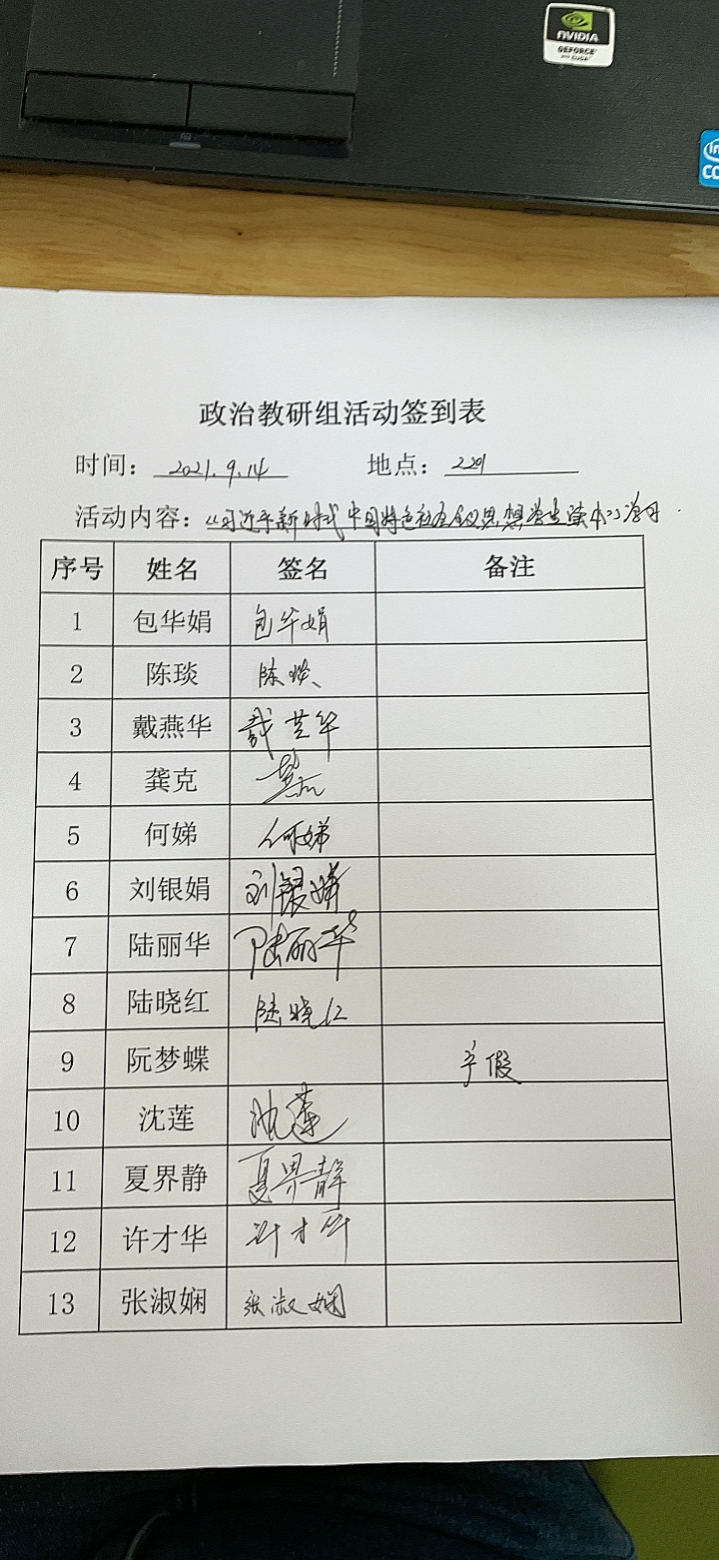 NVIDIA
GEFORCE
with CUDA
政治教研组活动签到表
时间：2021.9.14 地点：2201
活动内容：《习近平新时代中国特色社会主义思想学生读本》学习.
序号 姓名 签名 备注
1 包华娟 包华娟
2 陈琰 陈琰
3 戴燕华 戴燕华
4 龚克
5 何娣 何娣
6 刘银娟 刘银娟
7 陆丽华 陆丽华
8 陆晓红 陆晓红
9 阮梦蝶 产假
10 沈莲 沈莲
11 夏界静 夏界静
12 许才华 许才华
13 张淑娴 张淑娴